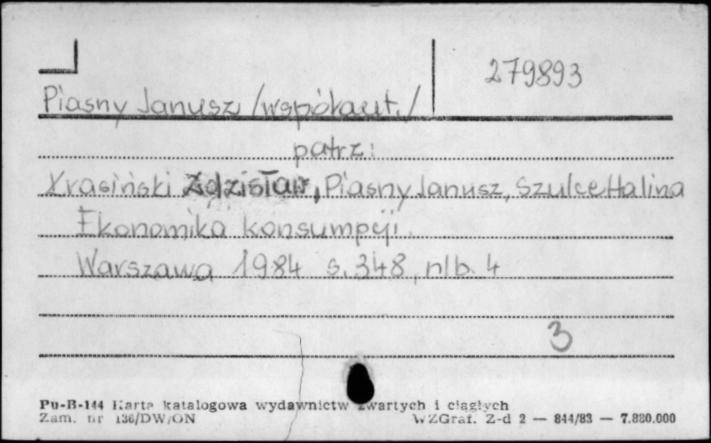 279893
Piasny Janusz /współaut./
patrz:
Krasiński Zdzisław, Piasny Janusz, Szulce Halina
Ekonomika konsumpcji.
Warszawa 1984 s. 348, nlb. 4
3
Pu-B-144 Karta katalogowa wydawnictw zwartych i ciągłych
Zam. nr 136/DW/ON WZGraf. Z-d 2 — 844/83 — 7.880.000